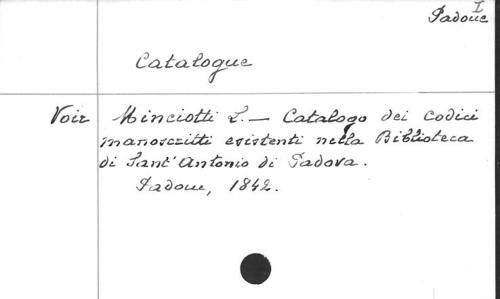 I
Padoue
Catalogue
Voir Minciotti L. — Catalogo dei codici
manoscritti esistenti nella Biblioteca
di Sant' Antonio di Padova.
Padoue, 1842.